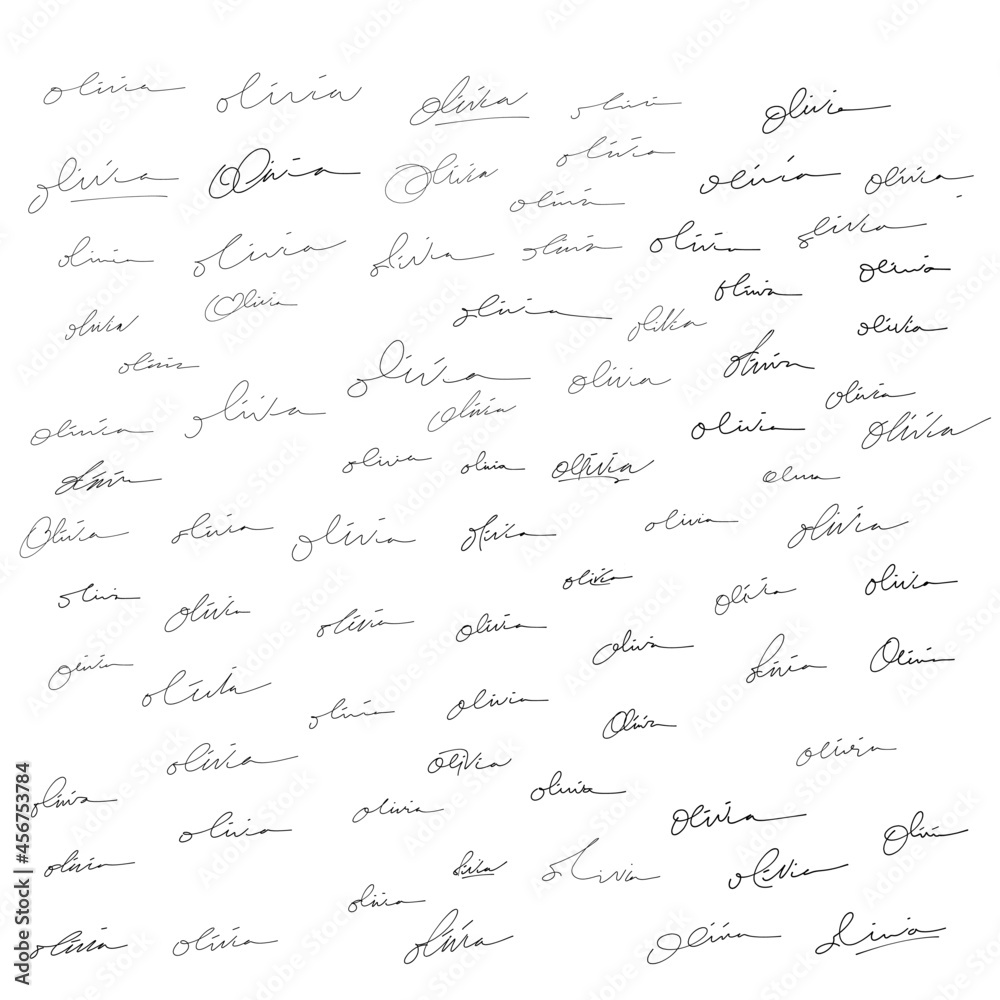 olivia olivia Olivia olivia Olivia
olivia Olivia Olivia olivia olivia olivia
olivia
olivia olivia olivia olivia olivia olivia
olivia Olivia olivia olivia olivia olivia
olivia
olivia olivia olivia olivia olivia
olivia olivia olivia olivia olivia
olivia olivia olivia olivia
Olivia olivia olivia olivia olivia olivia
olivia olivia olivia olivia olivia olivia olivia
olivia olivia olivia olivia Olivia
olivia olivia Olivia
olivia olivia olivia
olivia olivia olivia
olivia olivia Olivia
olivia olivia olivia olivia
olivia
olivia olivia olivia olivia olivia
Adobe Stock | #456753784